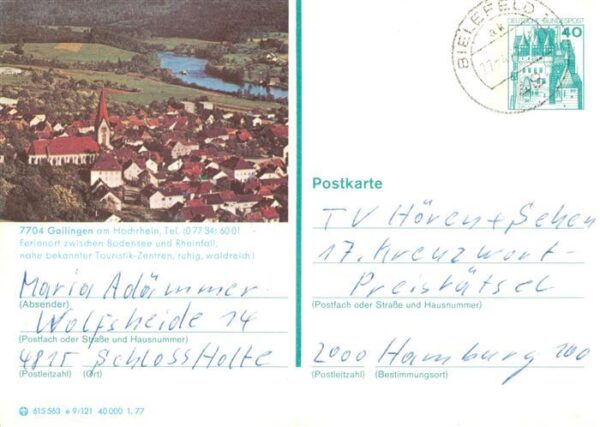 BIELEFELD
DEUTSCHE BUNDESPOST
40
7704 Gailingen am Hochrhein, Tel. (0 77 34) 60 01
Ferienort zwischen Bodensee und Rheinfall,
nahe bekannter Touristik-Zentren, ruhig, waldreich!
Maria Adämmer
(Absender)
Wolfsheide 14
(Postfach oder Straße und Hausnummer)
4815 Schloss Holte
(Postleitzahl) (Ort)
615 563 e 9/121 40 000 1. 77
Postkarte
TV Hören + Sehen
17. Kreuzwort-
Preisrätsel
(Postfach oder Straße und Hausnummer)
2000 Hamburg 100
(Postleitzahl) (Bestimmungsort)